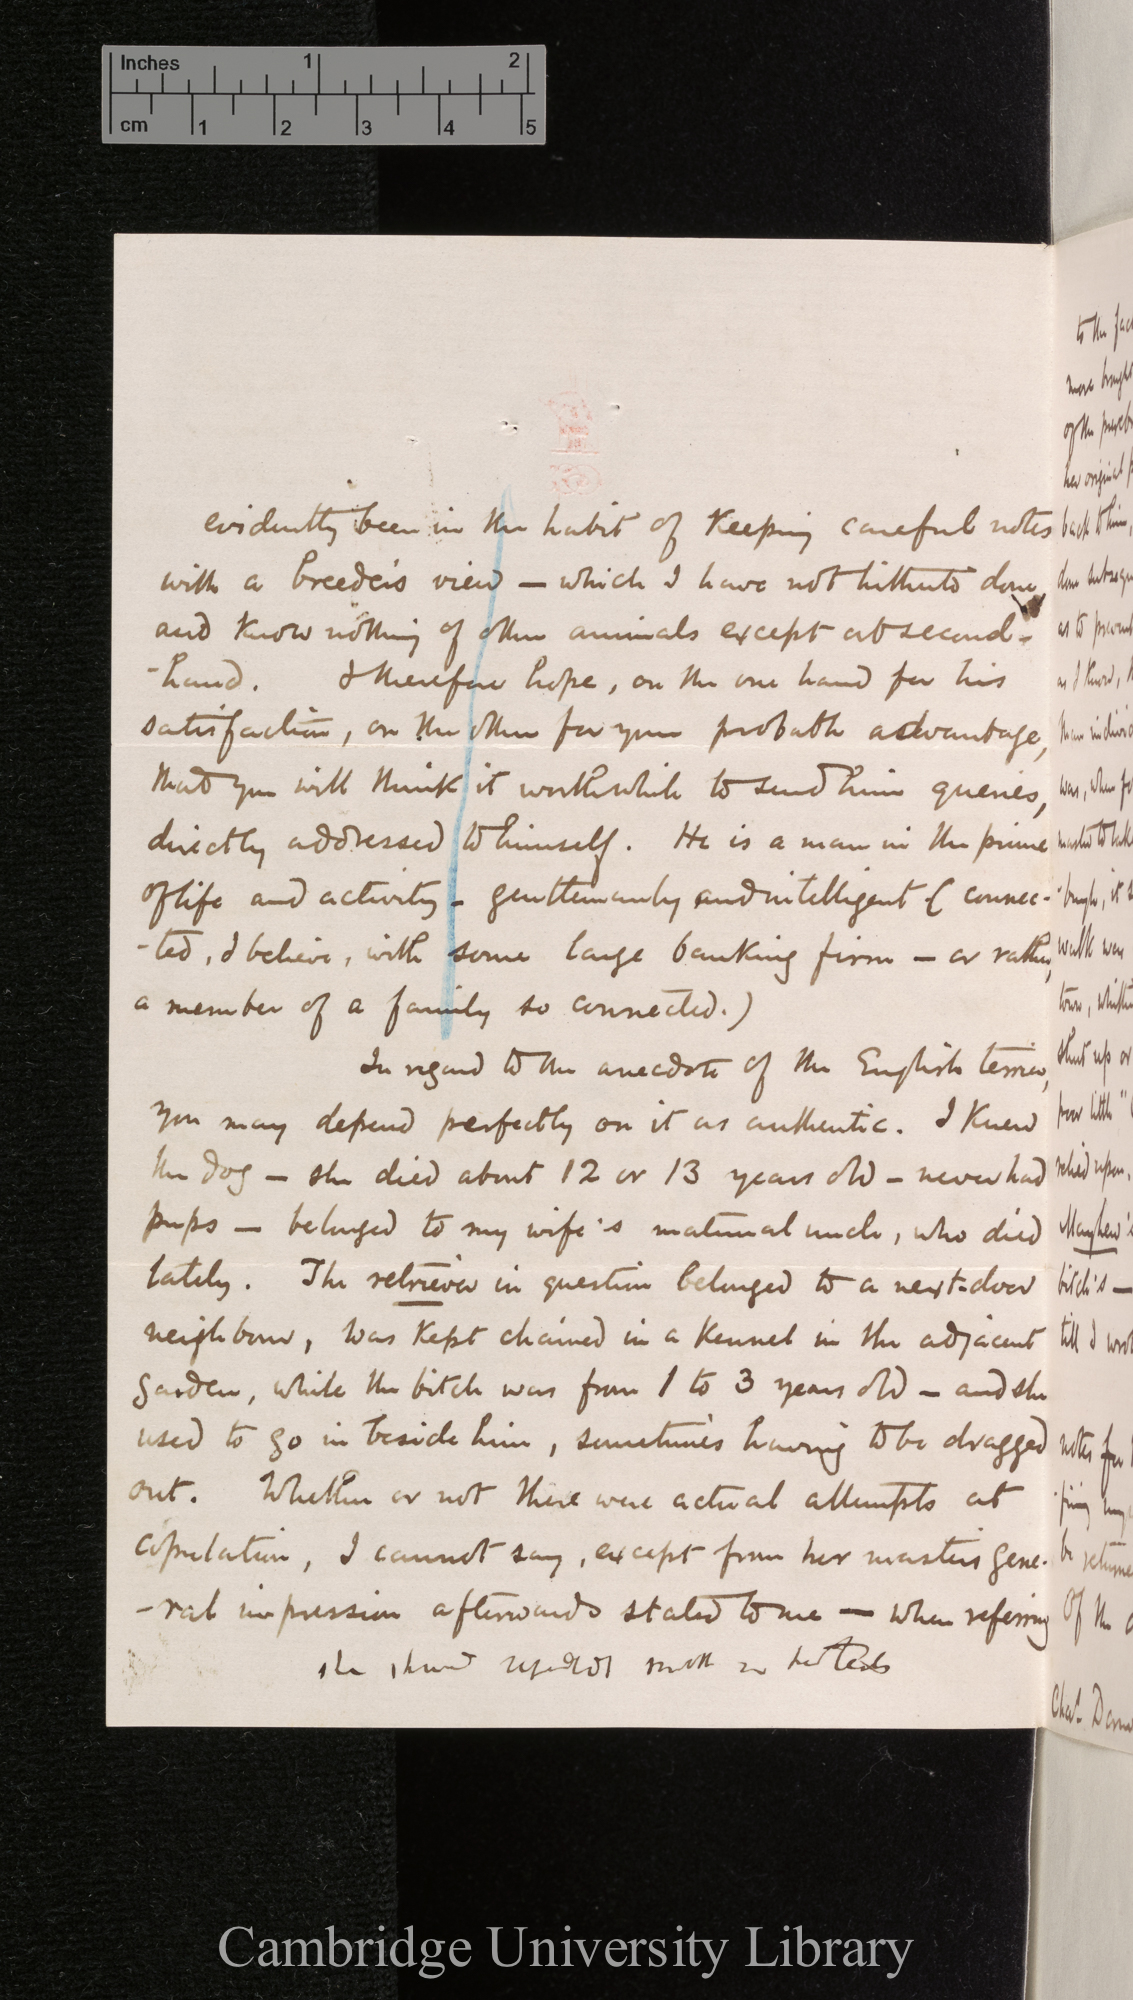 Inches 1 2
cm 1 2 3 4 5
evidently been in the habit of keeping careful notes
with a breeder's view — which I have not hitherto done,
and know nothing of other animals except at second-
-hand. I therefore hope, on the one hand for his
satisfaction, on the other for your probable advantage,
that you will think it worthwhile to send him queries,
directly addressed to himself. He is a man in the prime
of life and activity — gentlemanly and intelligent ( connec-
-ted, I believe, with some large banking firm — or rather,
a member of a family so connected.)
In regard to the anecdote of the English terrier,
you may depend perfectly on it as authentic. I knew
the dog — she died about 12 or 13 years old — never had
pups — belonged to my wife's maternal uncle, who died
lately. The retriever in question belonged to a next-door
neighbour, was kept chained in a kennel in the adjacent
garden, while the bitch was from 1 to 3 years old — and she
used to go in beside him, sometimes having to be dragged
out. Whether or not there were actual attempts at
copulation, I cannot say, except from her master's gene-
-ral impression afterwards stated to me — when referring
to the
more
of the
her original
back to him,
done
as to
as I know,
was, when
walk was
town,
shut up or
poor little "
relied upon.
Mayhew's
bitch's —
till I
notes for
be
Of the
Chas.
Cambridge University Library